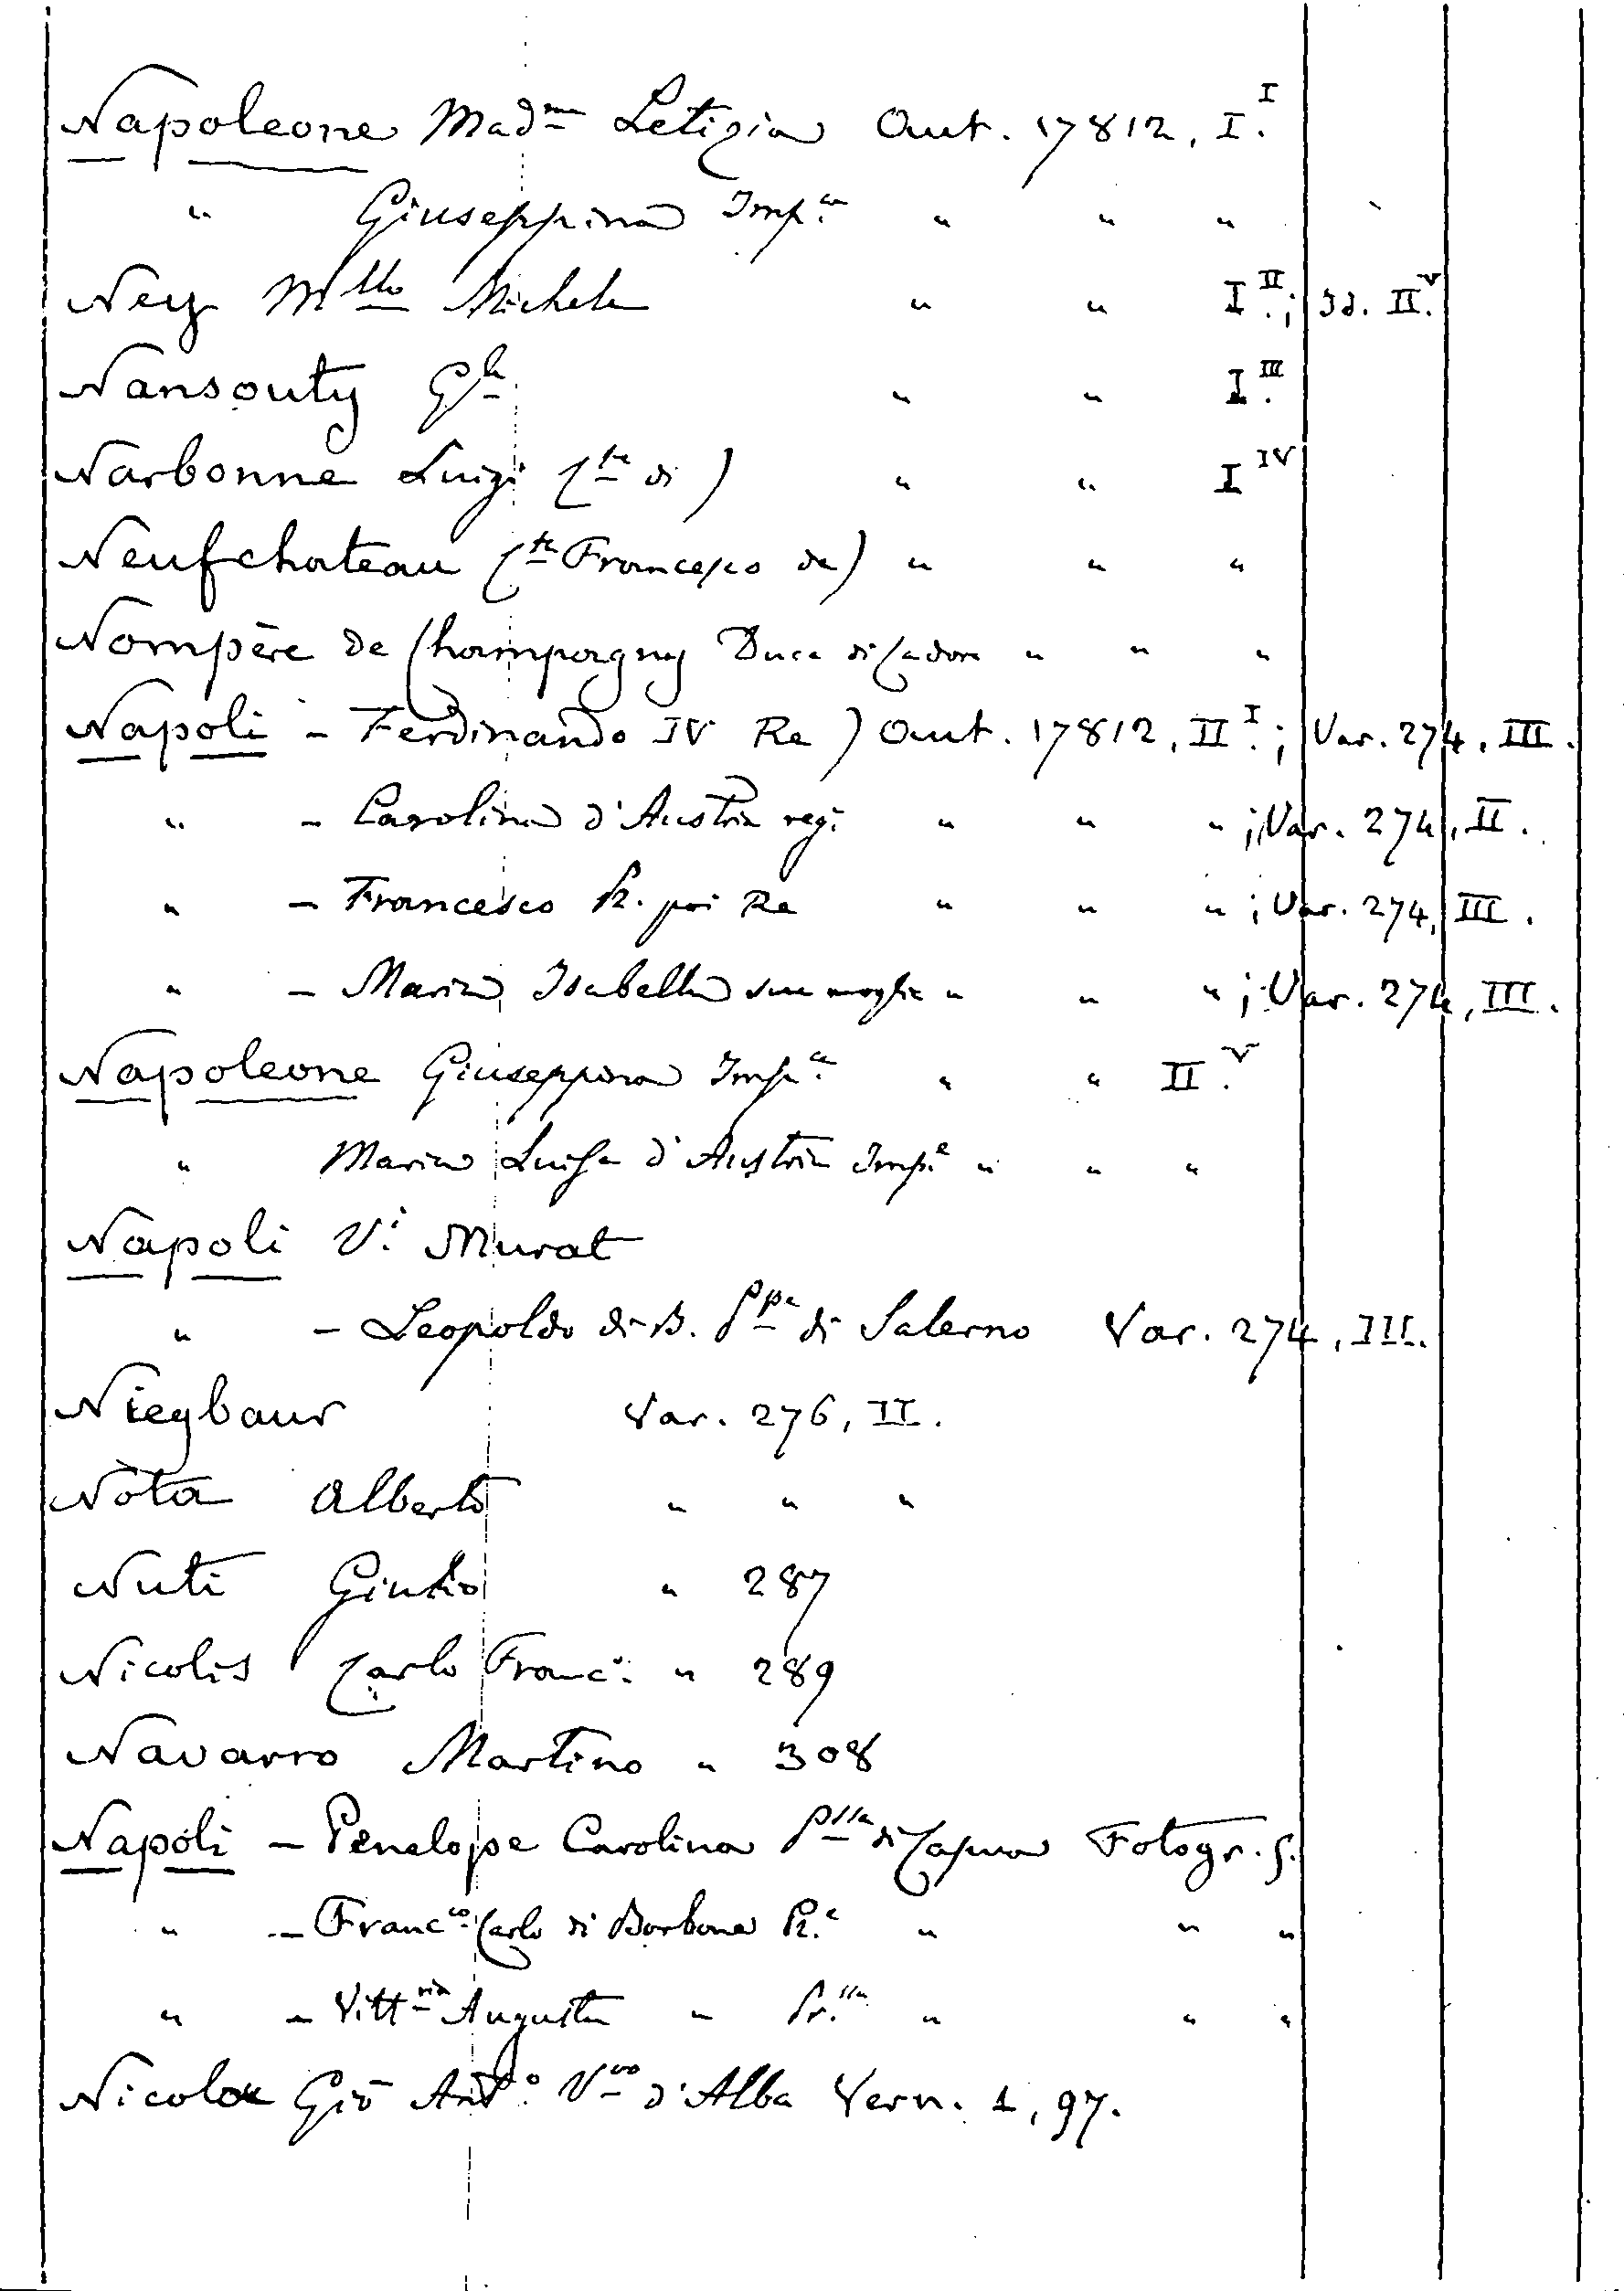 Napoleone Mad.ma Letizia Aut. 17812, I.I
" Giuseppina Imp.ce " " "
Ney M.llo Michele " " I.II; Id. II.V
Nansouty G.le " " I.III
Narbonne Luigi C.te di) " " I IV
Neufchateau C.te Francesco de) " " "
Nompère de Champagny Duca di Cadore " " "
Napoli - Ferdinando IV Re) Aut. 17812, II.I; Var. 274, III.
" - Carolina d'Austria reg. " " "; Var. 274, II.
" - Francesco Pr. poi Re " " "; Var. 274, III.
" - Maria Isabella sua moglie " " "; Var. 274, III.
Napoleone Giuseppina Imp.ce " " II.V
" Maria Luisa d'Austria Imp.e " " "
Napoli V.i Murat
" - Leopoldo di B. P.pe di Salerno Var. 274, III.
Nieybaur Var. 276, II.
Nota Alberto " " "
Nuti Giulio " 287
Nicolis Carlo Franc.o " 289
Navarro Martino " 308
Napoli - Penelope Carolina P.ssa di Capua Fotogr. S.
" - Franc.co Carlo di Borbone Pr.e " " "
" - Vitt.ria Augusta " Pr.ssa " " "
Nicola Gio Ant.o V.vo d'Alba Vern. 1, 97.